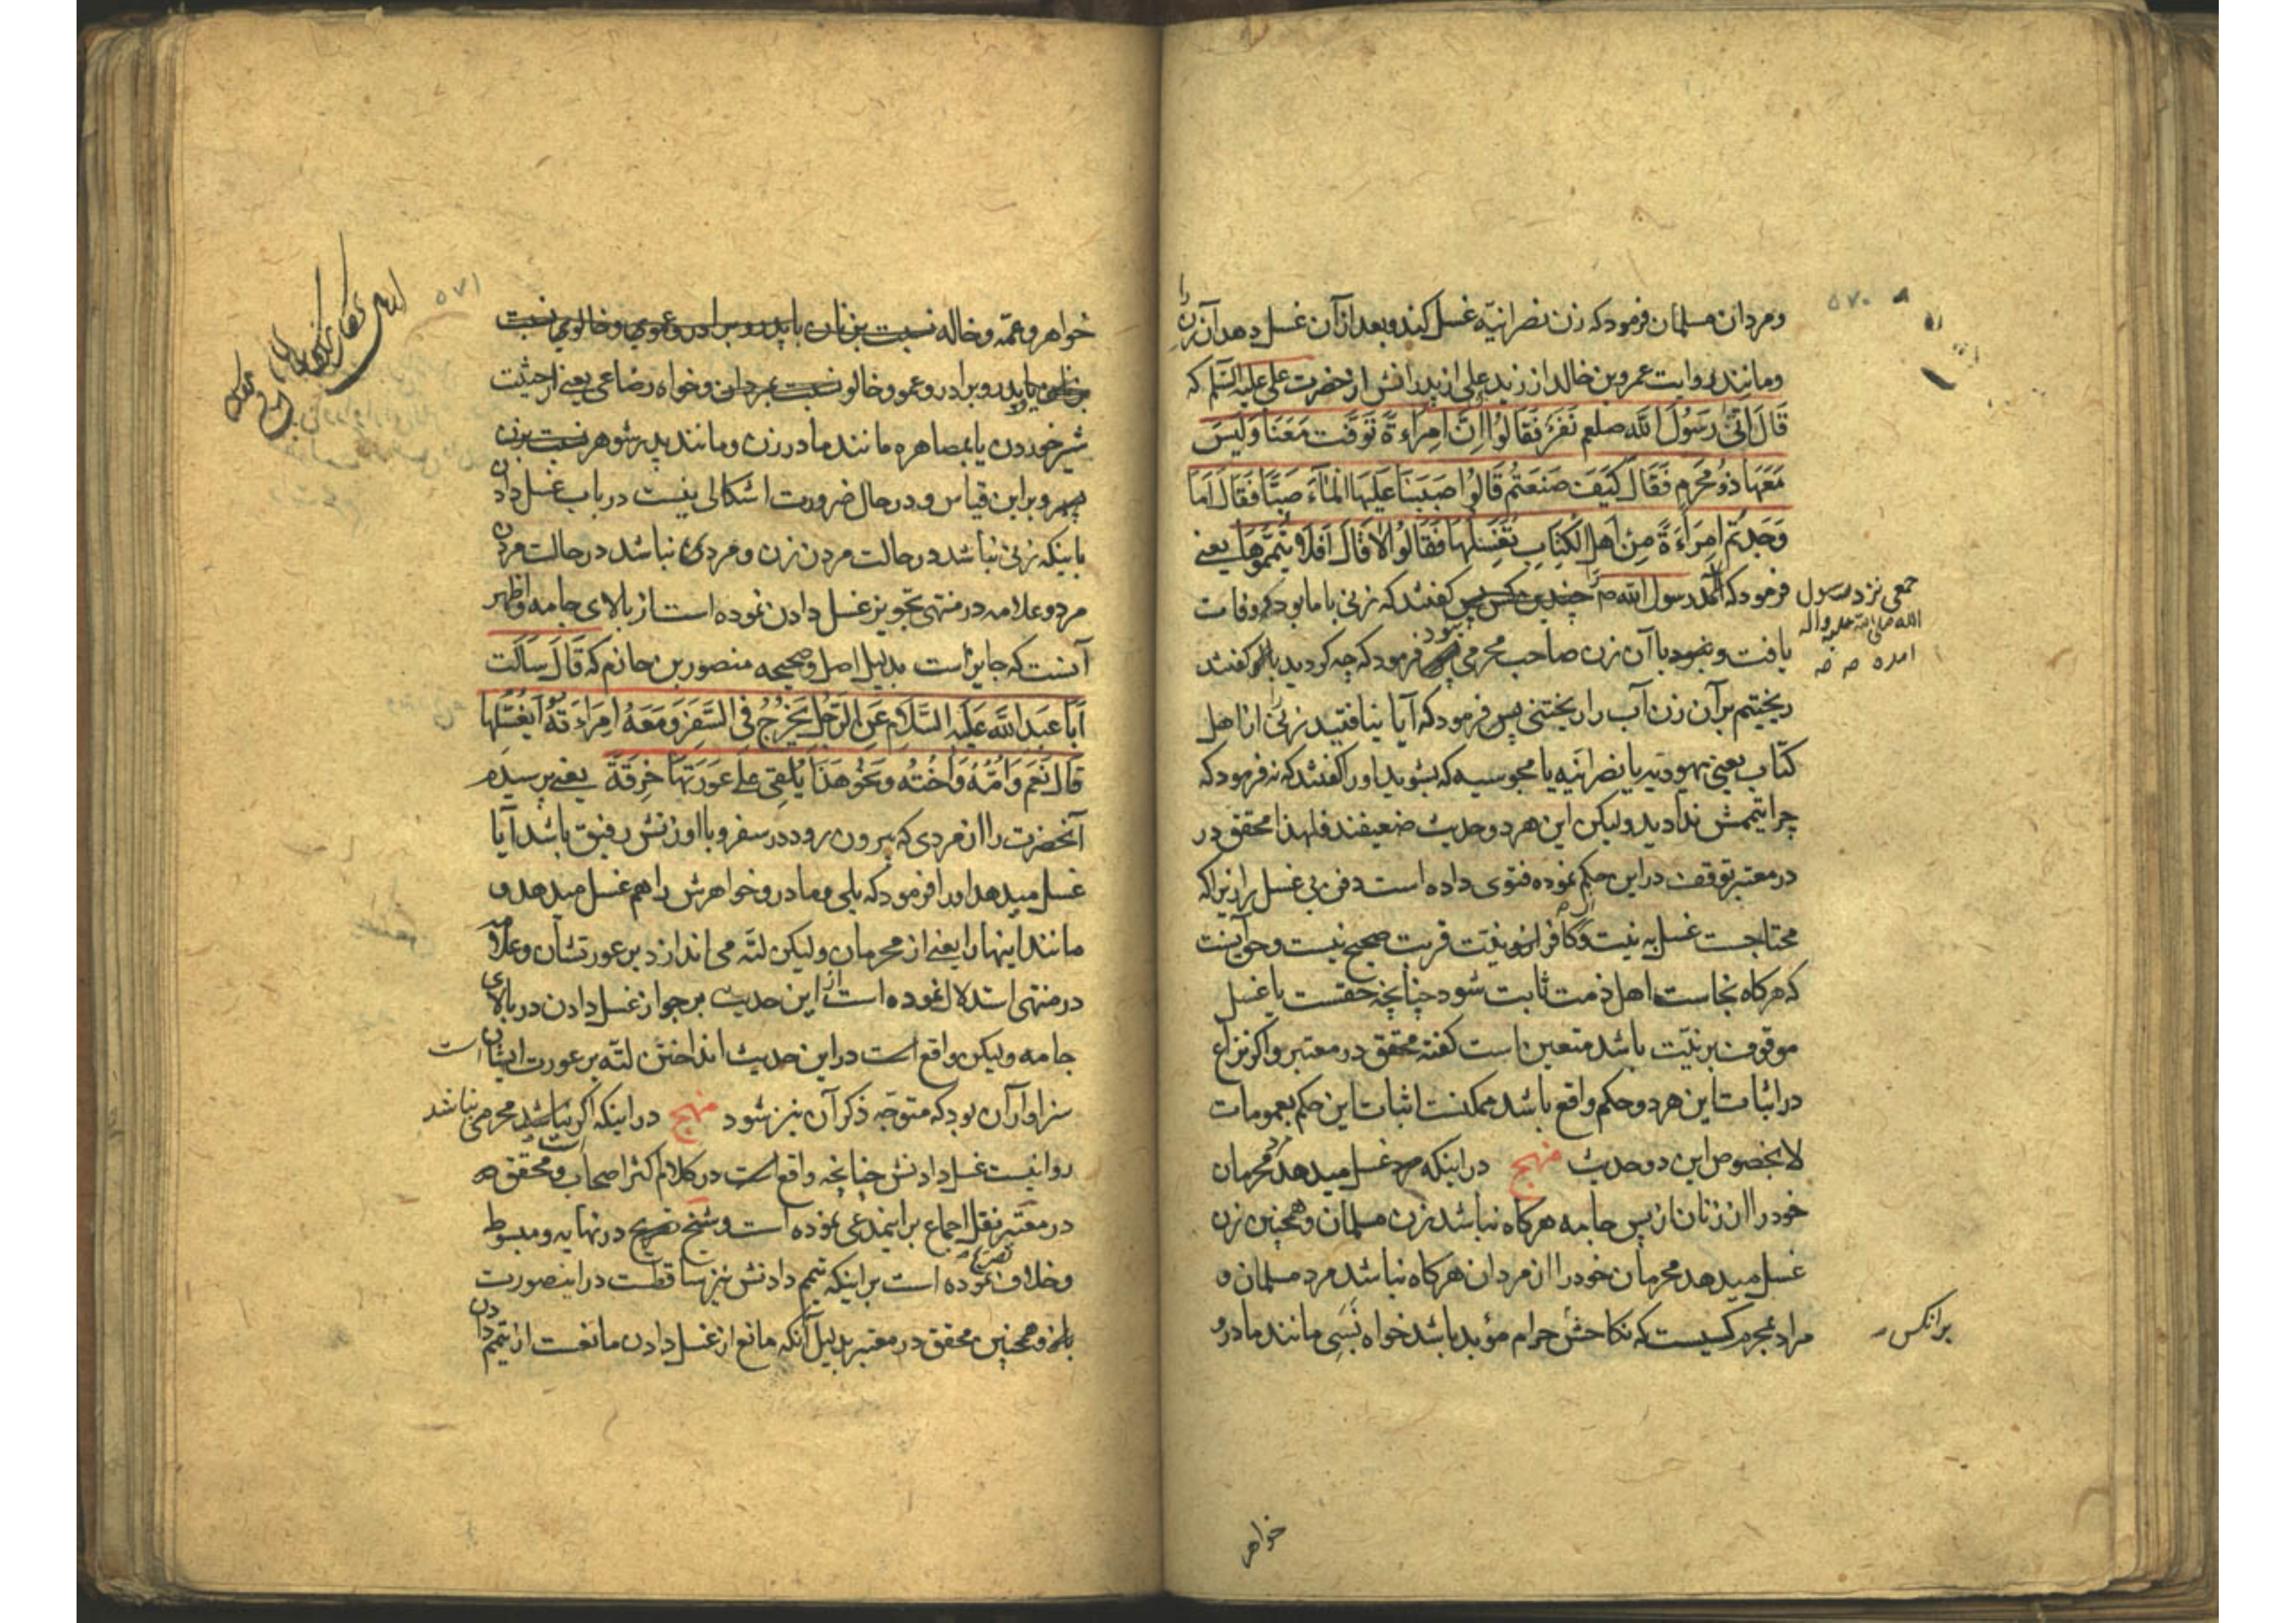 ۵۷۰
ومردان مسلمان فرمود که زن نصرانیّه غسل کند و بعد از آن غسل دهد آن زن را
ومانند روایت عمرو بن خالد از زید علی از پدرانش از حضرت علی علیه السّلم که
قَالَ اَتَی رَسُولَ اللّه صلعم نَفَرٌ فَقَالُوا اِنَّ اِمرَاءَةً تَوَفَّت مَعَنَا وَلَیسَ
مَعَهَا ذُو مَحرَمٍ فَقَالَ کَیفَ صَنَعتُم قَالُوا صَبَبنَا عَلَیهَا المَاءَ صَبّاً فَقَالَ اَمَا
وَجَدتُم اِمرَاءَةً مِن اَهلِ الکِتَابِ تُغَسِّلُهَا فَقَالُوا لَا قَالَ اَفَلَا یَمَّمتُمُوهَا یعنی
فرمود که رسول الله ص چندین کس پس گفتند که زنی با ما بود که وفات
جمعی نزد رسول
الله صلی الله علیه واله
امده صه صه
یافت و نبود با آن زن صاحب محرمی پس فرمود که چه کردید با او گفتند
ریختیم بر آن زن آب را ریختنی پس فرمود که آیا نیافتید زنی از اهل
کتاب یعنی یهودیه یا نصرانیه یا مجوسیه که بشوید او را گفتند که نه فرمود که
چرا تیممش ندادید ولیکن این هر دو حدیث ضعیفند فلهذا محقق در
در معتبر توقف در این حکم نموده فتوی داده است دفن بی غسل را زیرا که
محتاجست غسل به نیت و کافر را نیّت قربت صحیح نیست و حق آنست
که هرکاه نجاست اهل ذمت ثابت شود چنانچه حقست یا غسل
موقوف بر نیّت باشد متعین است گفته محقق در معتبر و اگر نزاع
در اثبات این هر دو حکم واقع باشد ممکنست اثبات این حکم بعمومات
لا بخصوص این دو حدیث منهج در اینکه مرد غسل میدهد محرمان
خود را از زنان از پس جامه هرکاه نباشد زن مسلمان و همچنین زن
غسل میدهد محرمان خود را از مردان هرکاه نباشد مرد مسلمان و
مراد بمحرم کسیست که نکاحش حرام مؤبد باشد خواه نَسَبی مانند مادر و
برانکس
خواهر
۵۷۱
خواهر و عمّه و خاله نسبت بزنان یا پدر و برادر و عموی و خالوی نسبت
یا پدر و برادر و عمو و خالو نسبت بمردان و خواه رضاعی یعنی از حیثیت
شیر خوردن یا بمصاهره مانند مادر زن و مانند پدر شوهر نسبت بزن
و بر این قیاس و در حال ضرورت اشکالی نیست در باب غسل دادن
باینکه زنی نباشد در حالت مردن زن و مردی نباشد در حالت مردن
مرد و علامه در منتهی تجویز غسل دادن نموده است از بالای جامه و اظهر
آنست که جایز است بدلیل اصل و صحیحه منصور بن حازم که قَالَ سَاَلتُ
اَبَا عَبدِ اللّه عَلَیهِ السَّلَامِ عَنِ الرَّجُلِ یَخرُجُ فِی السَّفَرِ وَ مَعَهُ اِمرَاءَتُهُ اَیُغَسِّلُهَا
قَالَ نَعَم وَ اُمَّهُ وَ اُختَهُ وَ نَحوَ هَذَا یُلقِی عَلَی عَورَتِهَا خِرقَةً یعنی پرسیدم
آنحضرت را از مردی که بیرون رود در سفر و با او زنش رفیق باشد آیا
غسل میدهد او را فرمود که بلی و مادر و خواهرش را هم غسل میدهد و
مانند اینها را یعنی از محرمان ولیکن لتّه می اندازد بر عورتشان و علامه
در منتهی استدلال نموده است از این حدیث بر جواز غسل دادن در بالای
جامه ولیکن واقع است در این حدیث انداختن لتّه بر عورت ایشان است
سزاوار آن بود که متوجّه ذکر آن نیز شود منهج در اینکه اگر نباشد محرمی نباشد
روا نیست غسل دادنش چنانچه واقع است در کلام اکثر اصحاب و محقق
در معتبر نقل اجماع بر اینمدعی نموده است و شیخ تصریح در نهایه و مبسوط
و خلاف نموده است بر اینکه تیمم دادنش نیز ساقطست در اینصورت
و همچنین محقق در معتبر بدلیل آنکه مانع از غسل دادن مانعست از تیمم دادن